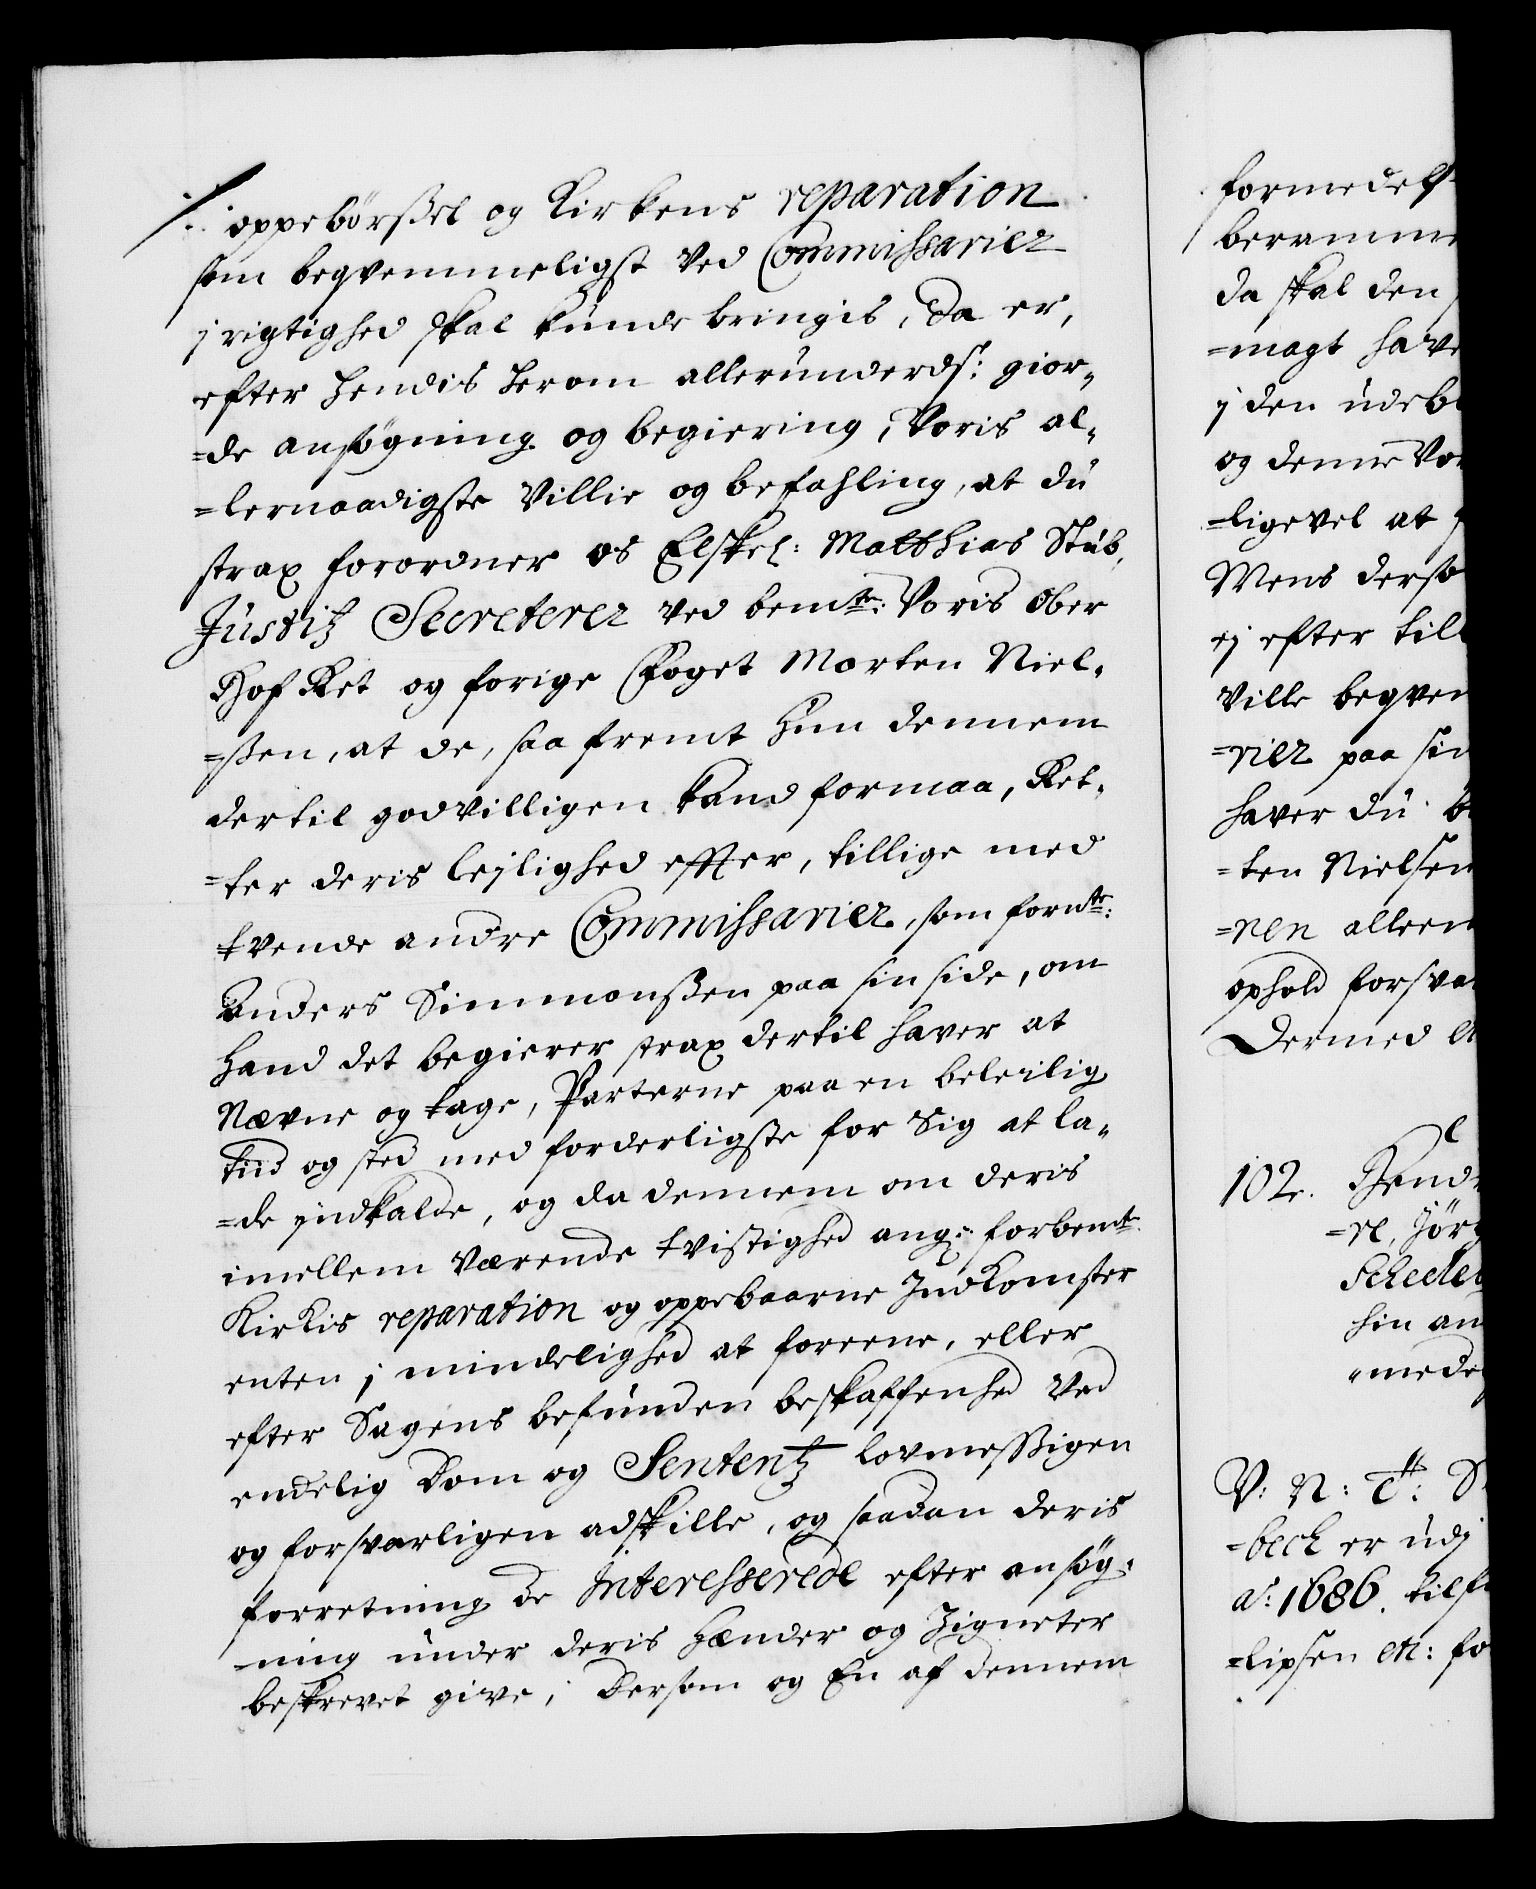 /: oppebørßel og Kirkens reparation
som beqvemmeligst ved Commissarier
j rigtighed skal kunde bringis, Da er,
efter hendis herom allerunderds: gior„
=de ansøgning og begiering, Voris al„
=lernaadigste Villie og befahling, at du
strax forordner os Elskel: Matthias Stub,
Justitz Secreterer ved bemte: Voris Ober
Hof Ret og forige Foget Morten Niel„
=ßen, at de, saa fremt hun dennem
dertil godvilligen kand formaa, Ret„
=ter deris lejlighed effter, tillige med
tvende andre Commissarier, som fornte:
Anders Simmonßen paa sin side, om
hand det begierer strax dertil haver at
Nævne og tage, Parterne paa en beleilig
tiid og sted med forderligste for Sig at la„
=de jndkalde, og da dennem om deris
imellem værende tvistighed ang: forbemte
Kirkis reparation og oppebaarne Indkomster
enten j mindelighed at foreene, eller
efter Sagens befunden beskaffenhed ved
endelig Dom og Sententz lovmeßigen
og forsvarligen adskille, og saadan deris
forretning de Interesserede efter ansøg„
=ning under deris Hænder og Zigneter
beskrevet give, Dersom og En af dennem
formedelst
beramme
da skal den
=magt have
j den udebl
og denne Vor
=ligevel at
Mens derso
ej efter till
ville beqvem
=rier paa sin
haver du
=ten Nielsen
=nen alleen
ophold forsva
Dermed
102. Hend
=re, Jør
Schedel
hin an
=mede
V: N: C: S
=bech er udj
a: 1686. tilf
=lipsen etc: fo